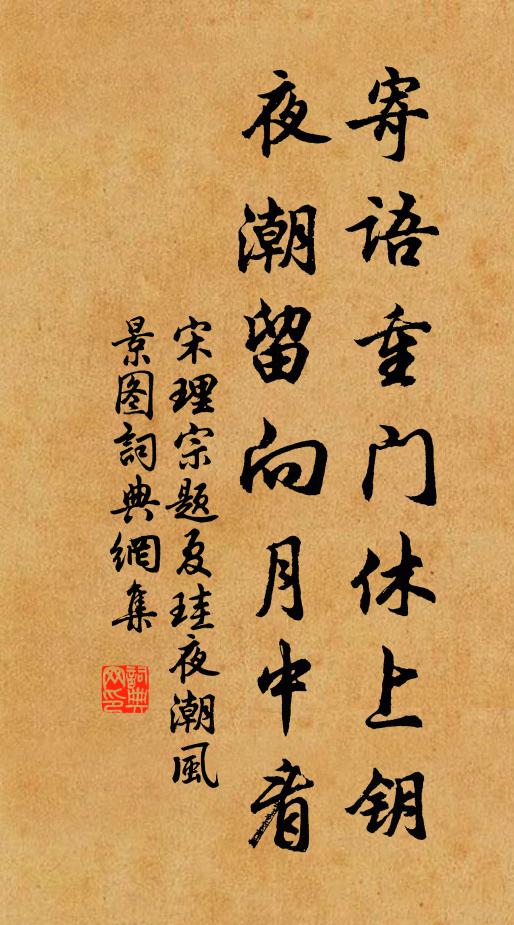 寄语重门休上钥
夜潮留向月中看
宋理宗题夏珪夜潮風
景图詞典網集
詞典网印